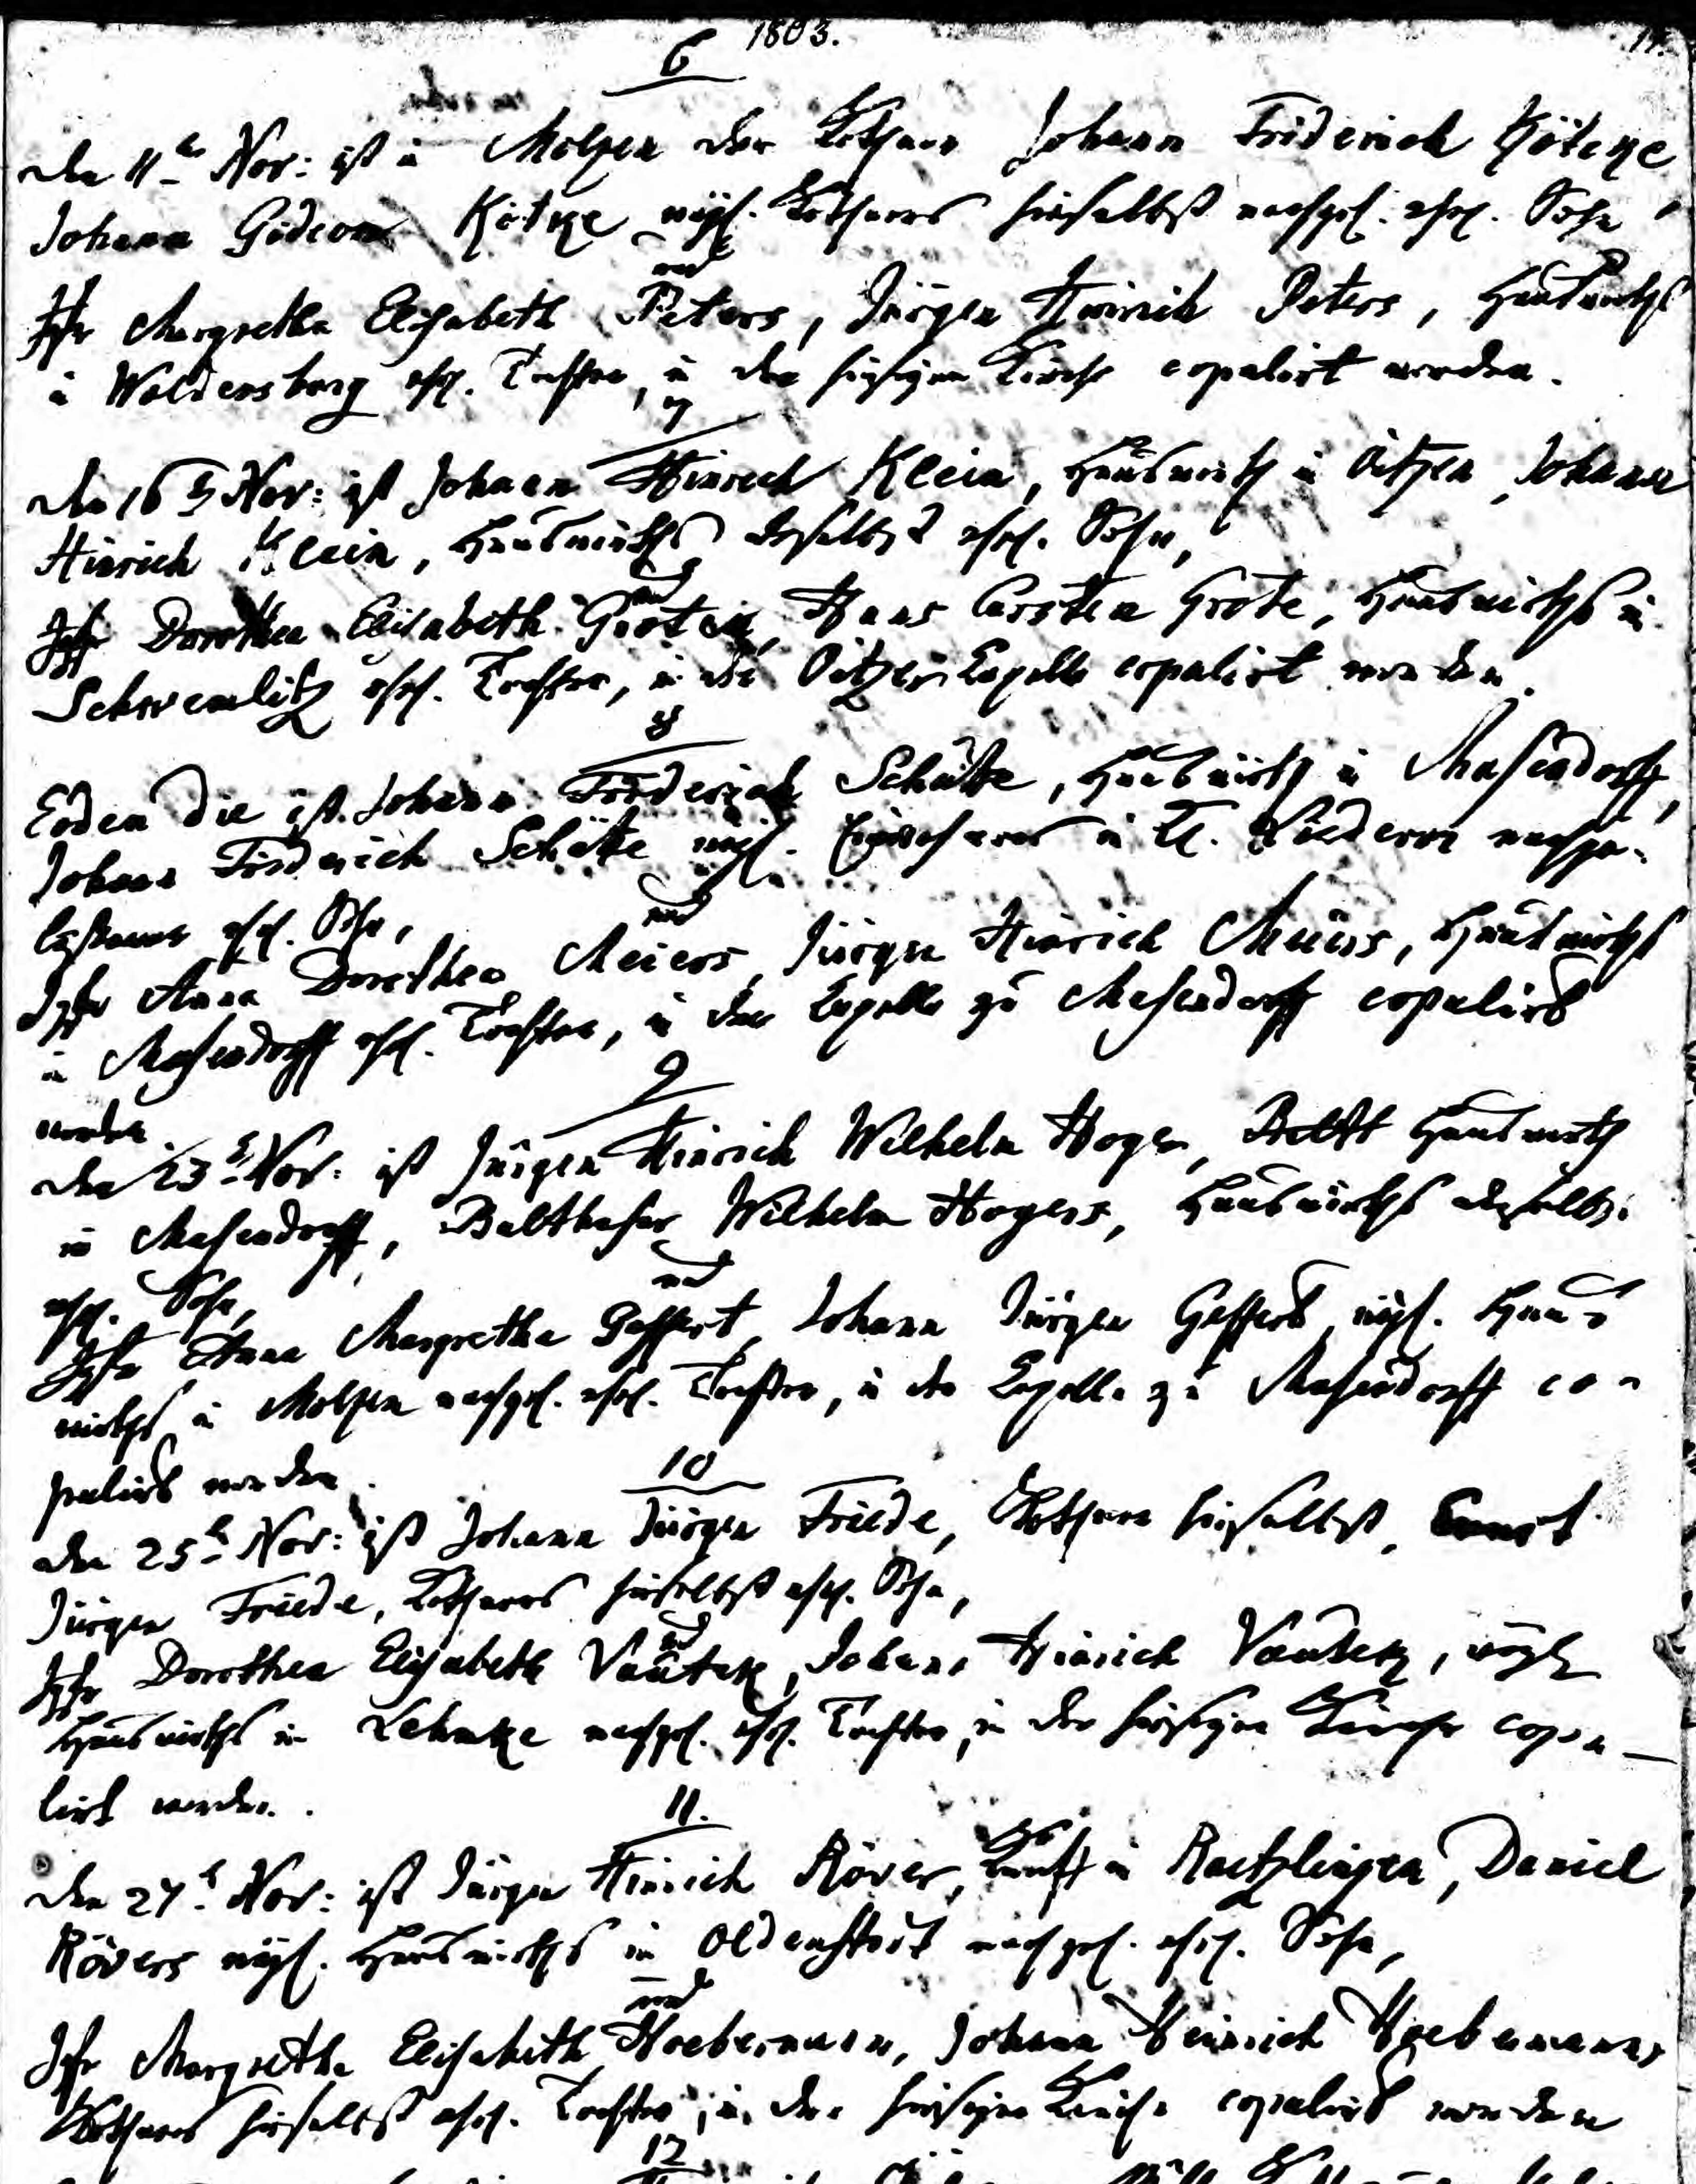 1803.
6
den 11ten Nov: ist in Molzen der Kothsass Johann Friderich Kötcke,
Johann Gideon Kötke weyl. Kothsassen hieselbst nachgel. ehel. Sohn
und
Jgfr Margretha Elisabeth Peters, Jürgen Hinrich Peters, Hauswirths
in Woldensborg ehel. Tochter, in der hiesigen Kirche copulirt worden.
7
den 16 Nov: ist Johann Hinrich Klein, Hauswirth in Oitzen, Johann
Hinrich Klein, Hauswirths daselbst ehel. Sohn,
und
Jgfr Dorothea Elisabeth Groten, Hans Carsten Grote, Hauswirths in
Schwemlitz ehel. Tochter, in der Oitzer Capelle copulirt worden.
8
Eoden die ist Johann Friderich Schütte, Hauswirth in Masendorff,
Johann Friderich Schütte weyl. in Kl. nachge-
lassener ehel. Sohn,
und
Jgfr Anna Dorothea Meiers, Jürgen Hinrich Meiers, Hauswirths
in Masendorff ehel. Tochter, in der Capelle zu Masendorff copulirt
worden.
9
den 23t Nov: ist Jürgen Hinrich Wilhelm Hoger, Hauswirth
in Masendorff, Balthasar Wilhelm Hogers, Hauswirths daselbst
ehel. Sohn,
und
Jgfr Anna Margretha Geffert, Johann Jürgen Gefferts, weyl. Haus
wirths in Molzen nachgel. ehel. Tochter, in der Capelle zu Masendorff co-
pulirt worden.
10
den 25t Nov: ist Johann Jürgen Friede, Kothsass hieselbst, Ernst
Jürgen Friede, Kothsassen hieselbst ehel. Sohn,
und
Jgfr Dorothea Elisabeth Vautck, Johann Hinrich Vautck, weyl
Hauswirths in Lehmke nachgel. ehel. Tochter, in der hiesigen Kirche copu-
lirt worden.
11.
den 27t Nov: ist Jürgen Hinrich Röver, in Raetzlingen, Daniel
Rövers weyl. Hauswirths in Oldenstadt nachgel. ehel. Sohn,
und
Jgfr Margretha Elisabeth Hoebermann, Johann Heinrich Hoebermanns
Kothsassen hieselbst ehel. Tochter, in der hiesigen Kirche copulirt worden
12